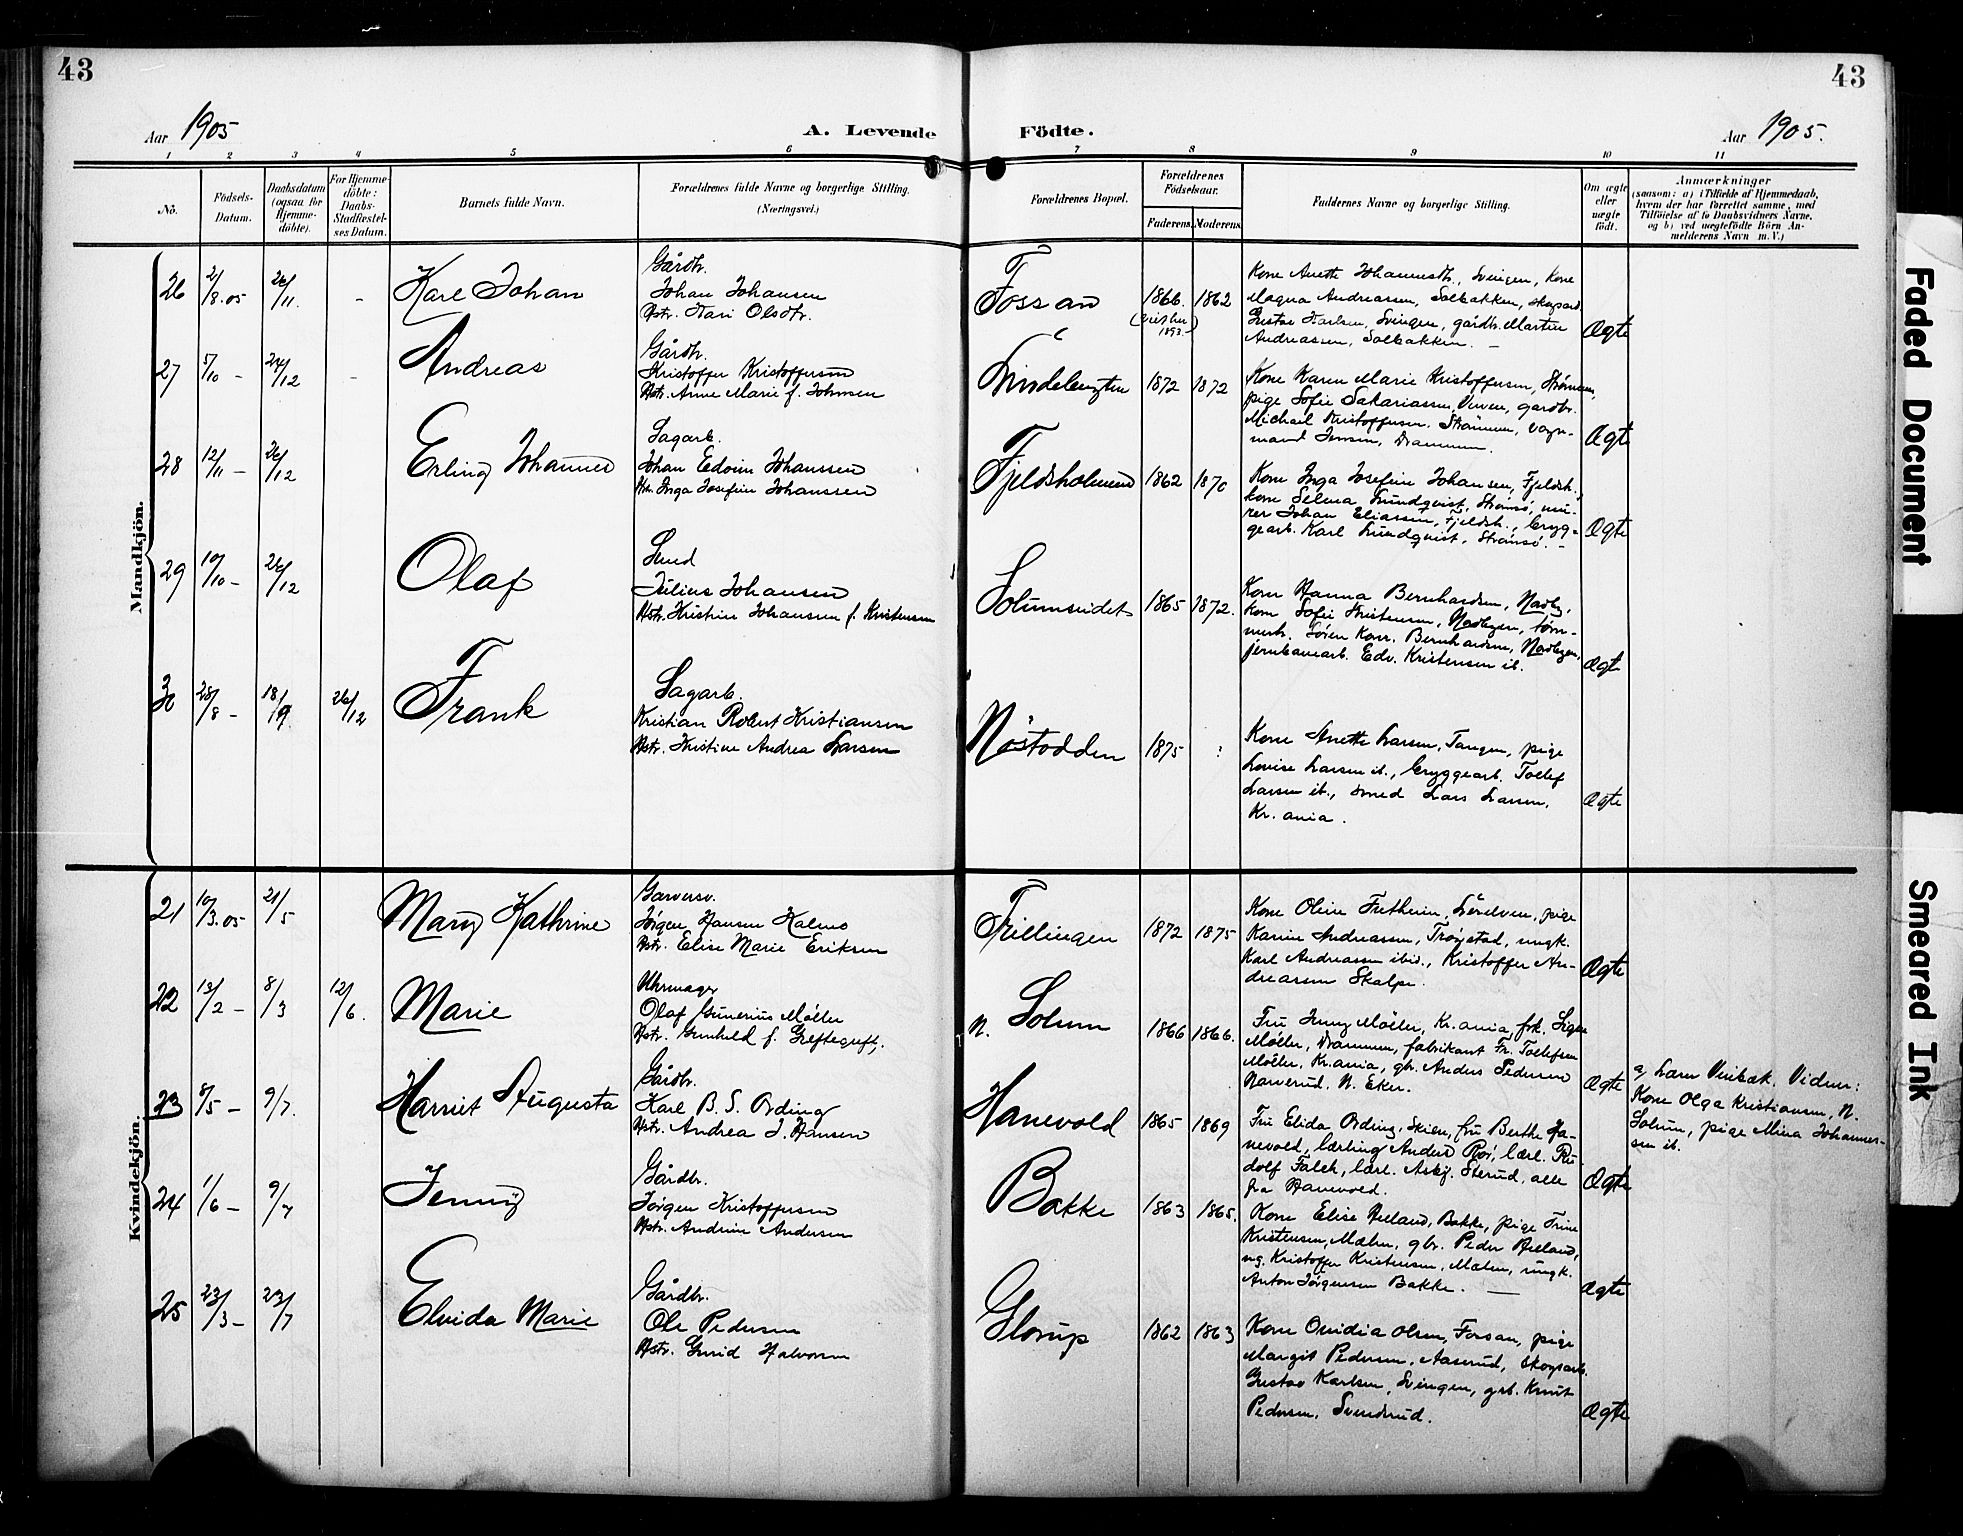 43
43
Aar 1905
A. Levende
Födte.
Aar 1905.
1 2 3 4 5 6 7 8 9 10 11
No.
Födsels-
Datum.
Daabsdatum
(ogsaa for
Hjemme-
döbte).
For Hjemme-
döbte:
Daabs-
Stadfæstel-
ses Datum.
Barnets fulde Navn.
Forældrenes fulde Navne og borgerlige Stilling.
(Næringsvei.)
Forældrenes Bopæl.
Forældrenes
Födselsaar.
Faderens. Moderens.
Faddernes Navne og borgerlige Stilling.
Om ægte
eller
uægte
födt.
Anmærkninger
(saasom: a) i Tilfælde af Hjemmedaab,
hvem der har forrettet samme, med
Tilföielse af to Daabsvidners Navne,
og b) ved uægtefödte Börn An-
melderens Navn m. V.)
Mandkjön.
26 2/8.05 26/11. - Karl Johan
Gårdbr.
Johan Johansen
Hstr. Kari Olsdtr.
Fossan 1866. 1862
1893
Kone Anette Johannesdtr., Svingen, Kone
Magna Andreassen, Solbakken, skogsarb.
Gustav Karlsen, Svingen, gårdbr. Martin
Andreassen, Solbakken. -
Ægte
27 5/10 - 24/12 - Andreas
Gårdbr.
Kristoffer Kristoffersen
Hstr. Anne Marie f. Johnsen
1872 1872
Kone Karen Marie Kristoffersen, Strømmen,
pige Sofie Sakariassen, gårdbr.
Michael Kristoffersen, Strømmen, vogn-
mand Jensen, Drammen.
Ægte
28 12/11 - 26/12 Erling Johannes
Sagarb.
Johan Edvin Johanssen
Hstr. Inga Josefine Johanssen
Fjeldsholmen 1862 1870
Kone Inga Josefine Johansen, Fjeldsh.,
kone Selma Lundqvist, Strømsø, mu-
rer Johan Eliassen, Fjeldsh., brygg-
gearb. Karl Lundqvist, Strømsø. -
Ægte
29 10/10 - 26/12 Olaf
Smed
Julius Johansen
Hstr. Kristine Johansen f. Kristensen
Solumseidet 1865 1872.
Kone Hanna Bernhardsen, Nadby,
kone Sofie Kristensen, Nadbyen, tøm-
merh. Søren Konr. Bernhardsen, Nadbyen,
jernbanearb. Edv. Kristensen ib.
Ægte
30 28/8 - 18/9. 26/12 Frank
Sagarb.
Kristian Robert Kristiansen
Hstr. Kristine Andrea Larsen
Nøstodden 1875 :
Kone Anette Larsen, Tangen, pige
Lovise Larsen ib., bryggearb. Tollef
Larsen ib., smed Lars Larsen,
Kr.ania.
Ægte
Kvindekjön.
21 10/3.05 21/5 Mary Kathrine
Garversv.
Jörgen Hansen Kalmo
Hstr. Elise Marie Eriksen
Trillingen 1872 1875
Kone Oline Fretheim, pige
Karine Andreassen, Trøystad, ungk.
Karl Andreassen ibid., Kristoffer An-
dreassen Skalpe.
Ægte
22 13/2 - 8/3 12/6. Marie
Uhrmager
Olaf Gunerius Møller
Hstr. Gunhild f. Greftegreff,
N. Solum 1866 1866.
Fru Jenny Møller, Kr.ania, frk. Signe
Møller, Drammen, fabrikant Fr. Tollefsen
Møller, Kr.ania, gbr. Anders Pedersen
Narverud, N. Eker.
Ægte
a, Laren Veibæk. Vidner:
Kone Olga Kristiansen, N.
Solum, pige Mina Johannes-
sen ib.
23 8/5 - 9/7. Harriet Augusta
Gårdbr.
Karl B. S. Ording
Hstr. Andrea J. Hansen
Hanevold 1865 1869
Fru Elida Ording, Skien, fru Berthe Ha-
nevold, lærling Anders Roi, lærl. Ru-
dolf Falch, lærl. Asbj. Sterud, alle
fra Hanevold.
Ægte
24 1/6 - 9/7 Jenny
Gårdbr.
Jörgen Kristoffersen
Hstr. Andrine Andersen
Bakke 1863 1865.
Kone Elise Aeland, Bakke, pige Trine
Kristensen, Mælen, gbr. Peder Aeland,
ng. Kristoffer Kristensen, Mælen, ungk.
Anton Jörgensen Bakke. -
Ægte
25 23/3 - 23/7 Elvida Marie
Gårdbr.
Ole Pedersen
Hstr. Gurid Halvorsen
Glorup 1862 1863
Kone Ovidia Olsen, Fossan, pige
Margit Pedersen, Aaserud, skogsarb.
Gustav Karlsen, Svingen, grb. Knut
Pedersen, Svendsrud.
Ægte
Faded Document
Smeared Ink